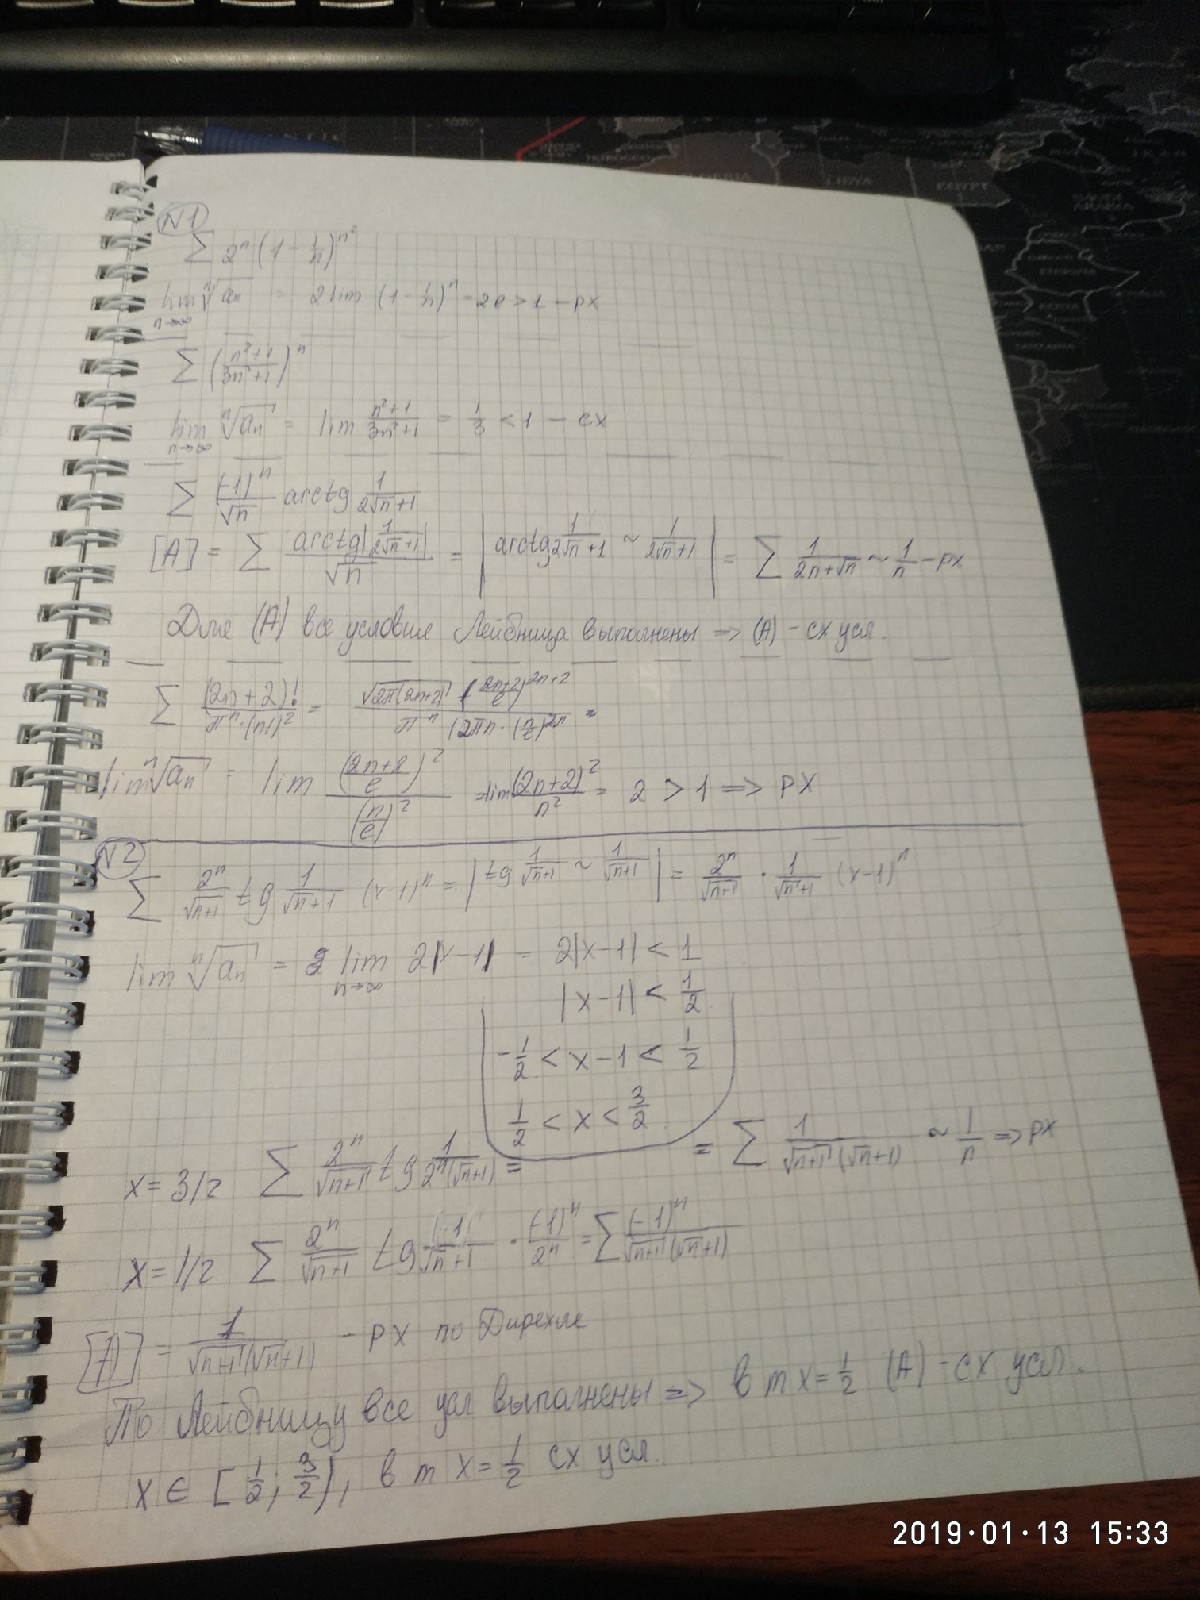 LIBYA
EGYPT
SAUDI
ARABIA
N1
∑ 2ⁿ (1 - 1/n)^{n²}
lim_{n→∞} ⁿ√aₙ = 2 lim (1 - 1/n)ⁿ = 2e > 1 - рх
∑ ((n²+1)/(3n²+1))ⁿ
lim_{n→∞} ⁿ√aₙ = lim (n²+1)/(3n²+1) = 1/3 < 1 - сх
∑ (-1)ⁿ/√n arctg 1/(2√n+1)
[A] = ∑ arctg|1/(2√n+1)|/√n = | arctg 1/(2√n+1) ~ 1/(2√n+1) | = ∑ 1/(2n+√n) ~ 1/n - рх
Для (A) все условия Лейбница выполнены => (A) - сх усл.
∑ (2n+2)!/(πⁿ·(n!)²) = √(2π(2n+2))·((2n+2)/e)^{2n+2}/(πⁿ (2πn·(n/e)^{2n}) =
lim ⁿ√aₙ = lim ((2n+2)/e)²/(n/e)² = lim (2n+2)²/n² = 2 > 1 => рх
N2
∑ 2ⁿ/√(n+1) tg 1/(√n+1) (x-1)ⁿ = | tg 1/(√n+1) ~ 1/(√n+1) | = 2ⁿ/√(n+1) · 1/(√n+1) (x-1)ⁿ
lim ⁿ√aₙ = 2 lim_{n→∞} 2|x-1| = 2|x-1| < 1
|x-1| < 1/2
-1/2 < x-1 < 1/2
1/2 < x < 3/2
x = 3/2 ∑ 2ⁿ/√(n+1) tg 1/(2ⁿ(√n+1)) = = ∑ 1/(√(n+1)(√n+1)) ~ 1/n => рх
x = 1/2 ∑ 2ⁿ/√(n+1) tg (-1)ⁿ/(√n+1) · (-1)ⁿ/2ⁿ = ∑ (-1)ⁿ/(√(n+1)(√n+1))
[A] = 1/(√(n+1)(√n+1)) - рх по Дирехле
По Лейбницу все усл выполнены => в т x = 1/2 (A) - сх усл.
x ∈ [1/2; 3/2), в т x = 1/2 сх усл.
2019·01·13 15:33